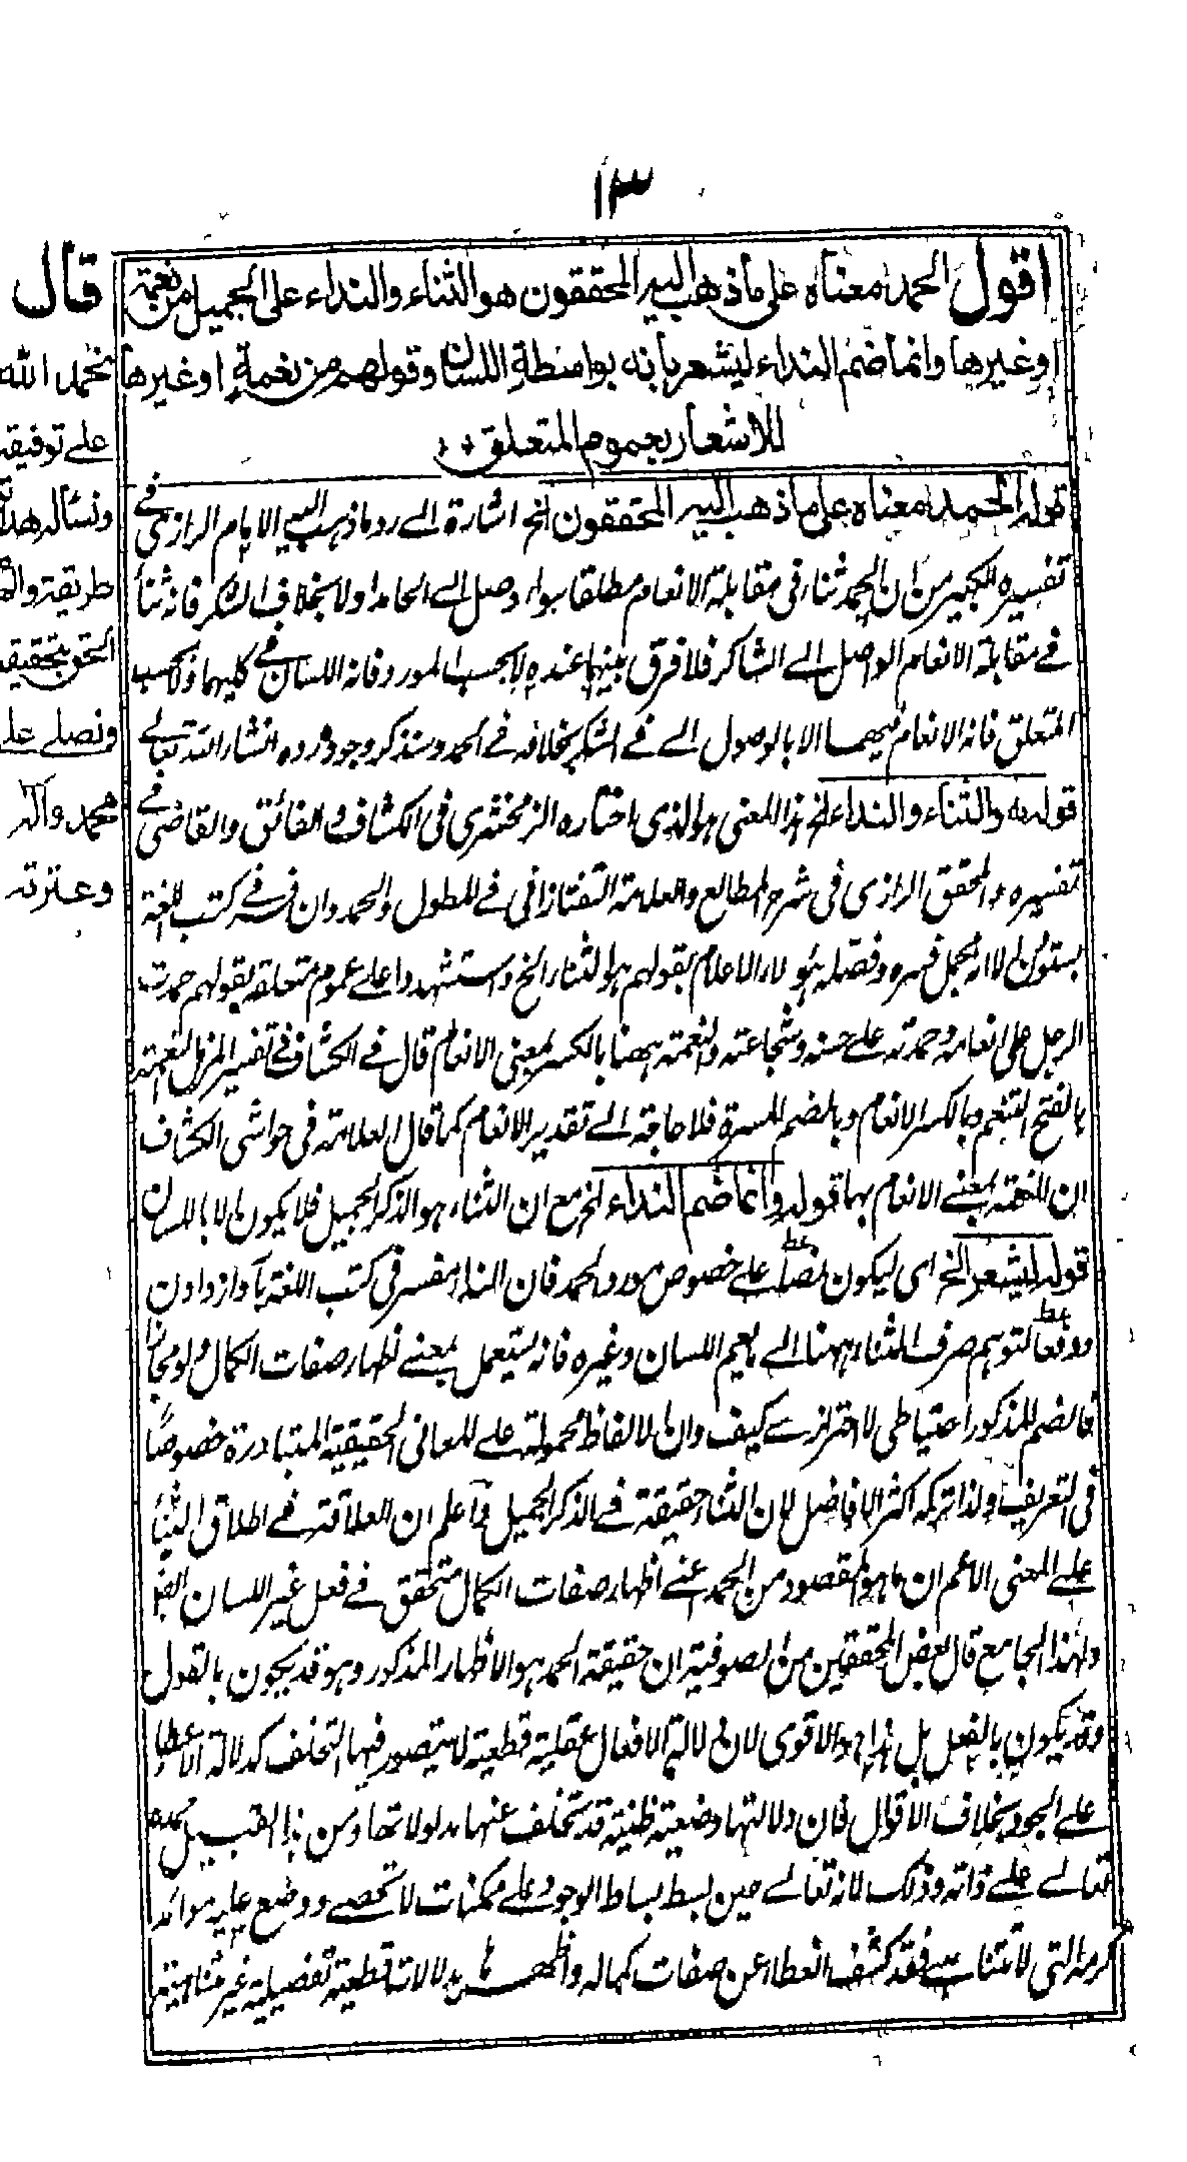 ١٣
اقول الحمد معناه على ما ذهب اليه المحققون هو الثناء والنداء على الجميل من نعمة
او غيرها وانما ضم النداء ليشعر بانه بواسطة اللسان وقولهم من نعمة او غيرها
للاشعار بعموم المتعلق
قوله الحمد معناه على ما ذهب اليه المحققون الخ اشارة الے رد ما ذهب اليه الامام الرازى فے
تفسيره الكبير من ان الحمد ثناء فى مقابلة الانعام مطلقا سواء وصل الے الحامد اولا بخلاف الشكر فانه ثناء
فے مقابلة الانعام الواصل الے الشاكر فلا فرق بينهما عنده لا بحسب المورد فانه اللسان فے كليهما ولا بحسب
المتعلق فانه الانعام فيهما الا بالوصول الے فے الشكر بخلافه فے الحمد وسنذكر وجوه رده انشاء الله تعالے
قوله هو الثناء والنداء الخ هذا المعنى هو الذى اختاره الزمخشرى فى الكشاف والفائق والقاضى فے
تفسيره والمحقق الرازى فى شرح المطالع والعلامة التفتازانى فے المطول والحمد وان فسر فے كتب اللغة
بستودن الا انه مجمل فسره وفصله هؤلاء الاعلام بقولهم هو الثناء الخ واستشهدوا على عموم متعلقه بقولهم حمدت
الرجل على انعامه وحمدته علے حسنه وشجاعته والنعمة ههنا بالكسر بمعنى الانعام قال فے الكشاف فے تفسير المزمل النعمة
بالفتح التنعم وبالكسر الانعام وبالضم المسرة فلا حاجة الے تقدير الانعام كما قال العلامة فى حواشى الكشاف
ان النعمة بمعنے الانعام بها قوله وانما ضم النداء الخ مع ان الثناء هو الذكر الجميل فلا يكون الا باللسان
قوله ليشعر الخ اى ليكون نصا علے خصوص مورد الحمد فان النداء مفسر فى كتب اللغة بآواز دادن
ودفعا لتوهم صرف الثناء ههنا الے ما يعم اللسان وغيره فانه يستعمل بمعنے اظهار صفات الكمال ولو مجازا
فالضم المذكور احتياطى لا احترازے كيف وان الالفاظ محمولة علے المعانى الحقيقية المتبادرة خصوصًا
فى التعريف ولذا تركه اكثر الافاضل لان الثناء حقيقة فے الذكر الجميل واعلم ان العلاقة فے اطلاق الثناء
علے المعنى الاعم ان ما هو المقصود من الحمد اعنے اظهار صفات الكمال متحقق فے فعل غير اللسان ايضا
ولهذا الجامع قال بعض المحققين من الصوفية ان حقيقة الحمد هو الاظهار المذكور وهو قد يكون بالقول
وقد يكون بالفعل بل هذا هو الاقوى لان دلالة الافعال عقلية قطعية لا يتصور فيها التخلف كدلالة الاعطاء
علے الجود بخلاف الاقوال فان دلالتها وضعية ظنية قد يتخلف عنها مدلولاتها ومن هذا القبيل حمده
تعالے علے ذاته وذلك لانه تعالے حين بسط بساط الوجود علے ممكنات لا تحصے ووضع عليه موائد
كرمه التى لا تتناهے فقد كشف الغطاء عن صفات كماله واظهرها بدلالات قطعية تفصيلية غير متناهية
قال
نحمد الله
علے توفيقه
ونسأله
طريقه
الحق بتحقيقه
ونصلے علے
محمد وآله
وعترته